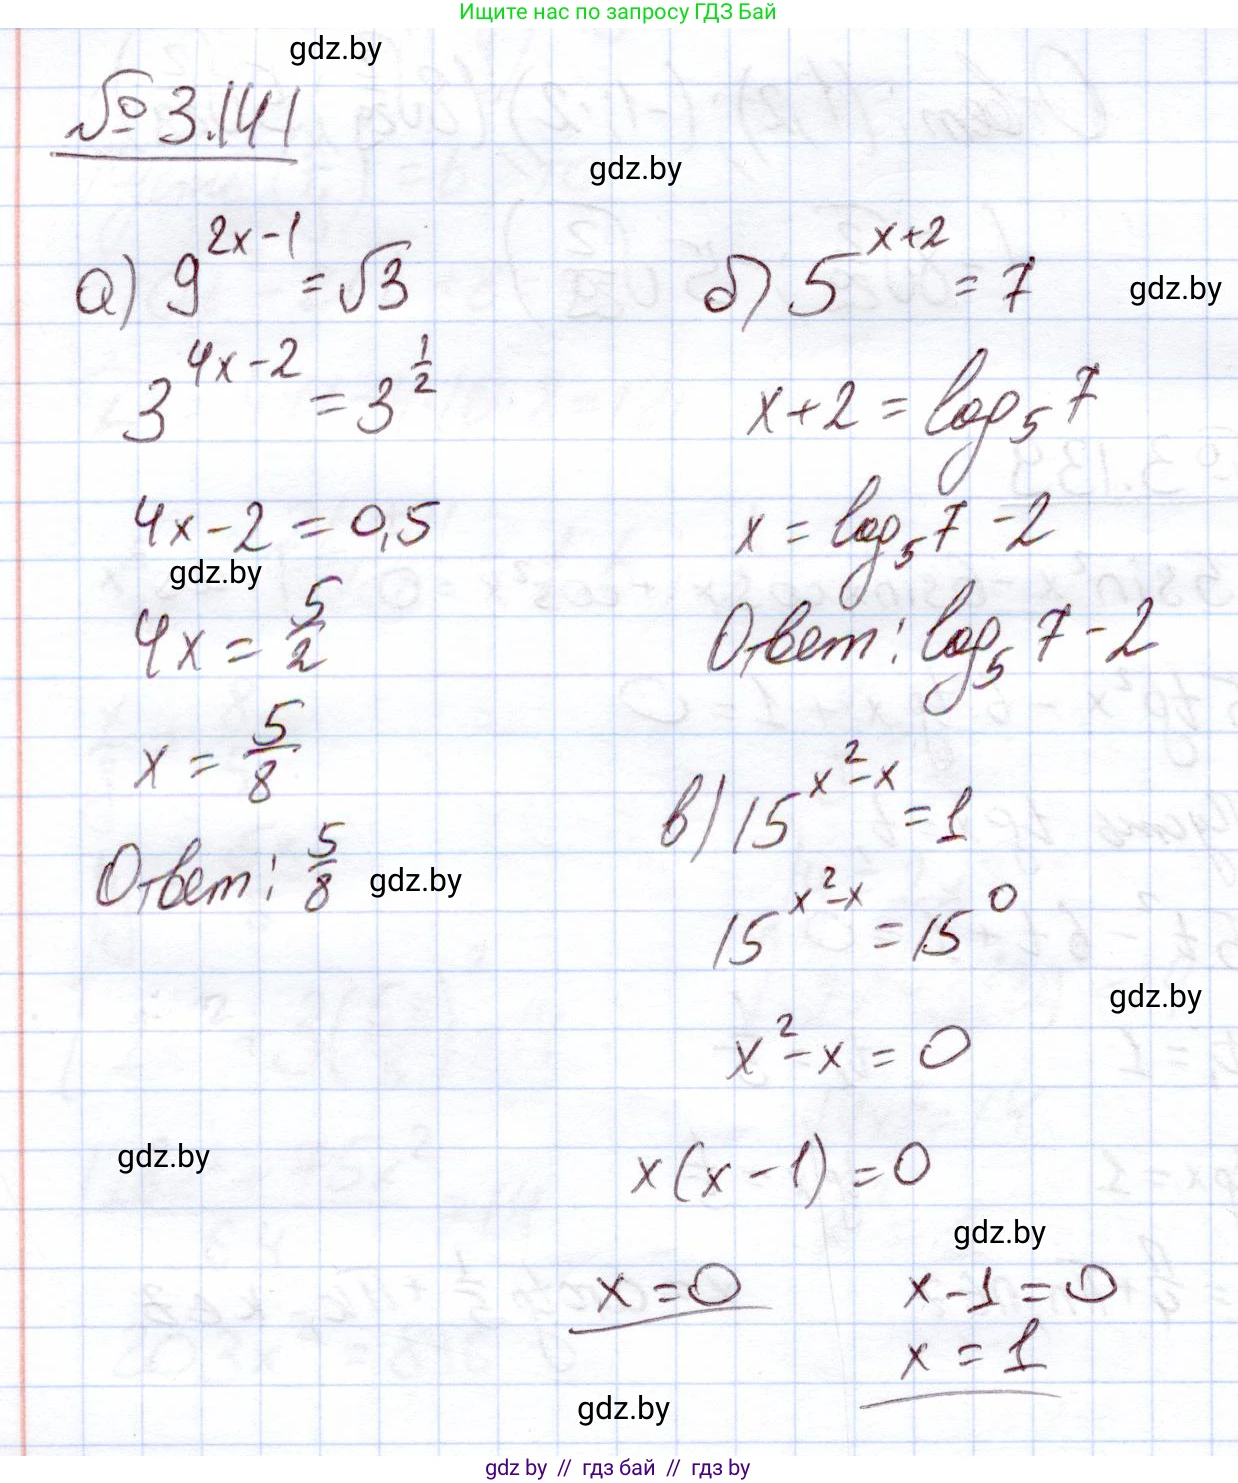 Ищите нас по запросу ГДЗ Бай
gdz.by
№ 3.141
gdz.by
а) 9^(2x-1) = √3
3^(4x-2) = 3^(1/2)
4x-2 = 0,5
gdz.by
4x = 5/2
x = 5/8
Ответ: 5/8
gdz.by
gdz.by
б) 5^(x+2) = 7
gdz.by
x+2 = log₅7
x = log₅7 - 2
Ответ: log₅7 - 2
в) 15^(x²-x) = 1
15^(x²-x) = 15^0
gdz.by
x² - x = 0
x(x-1) = 0
gdz.by
x = 0
x-1 = 0
x = 1
gdz.by
gdz by // гдз бай // гдз by